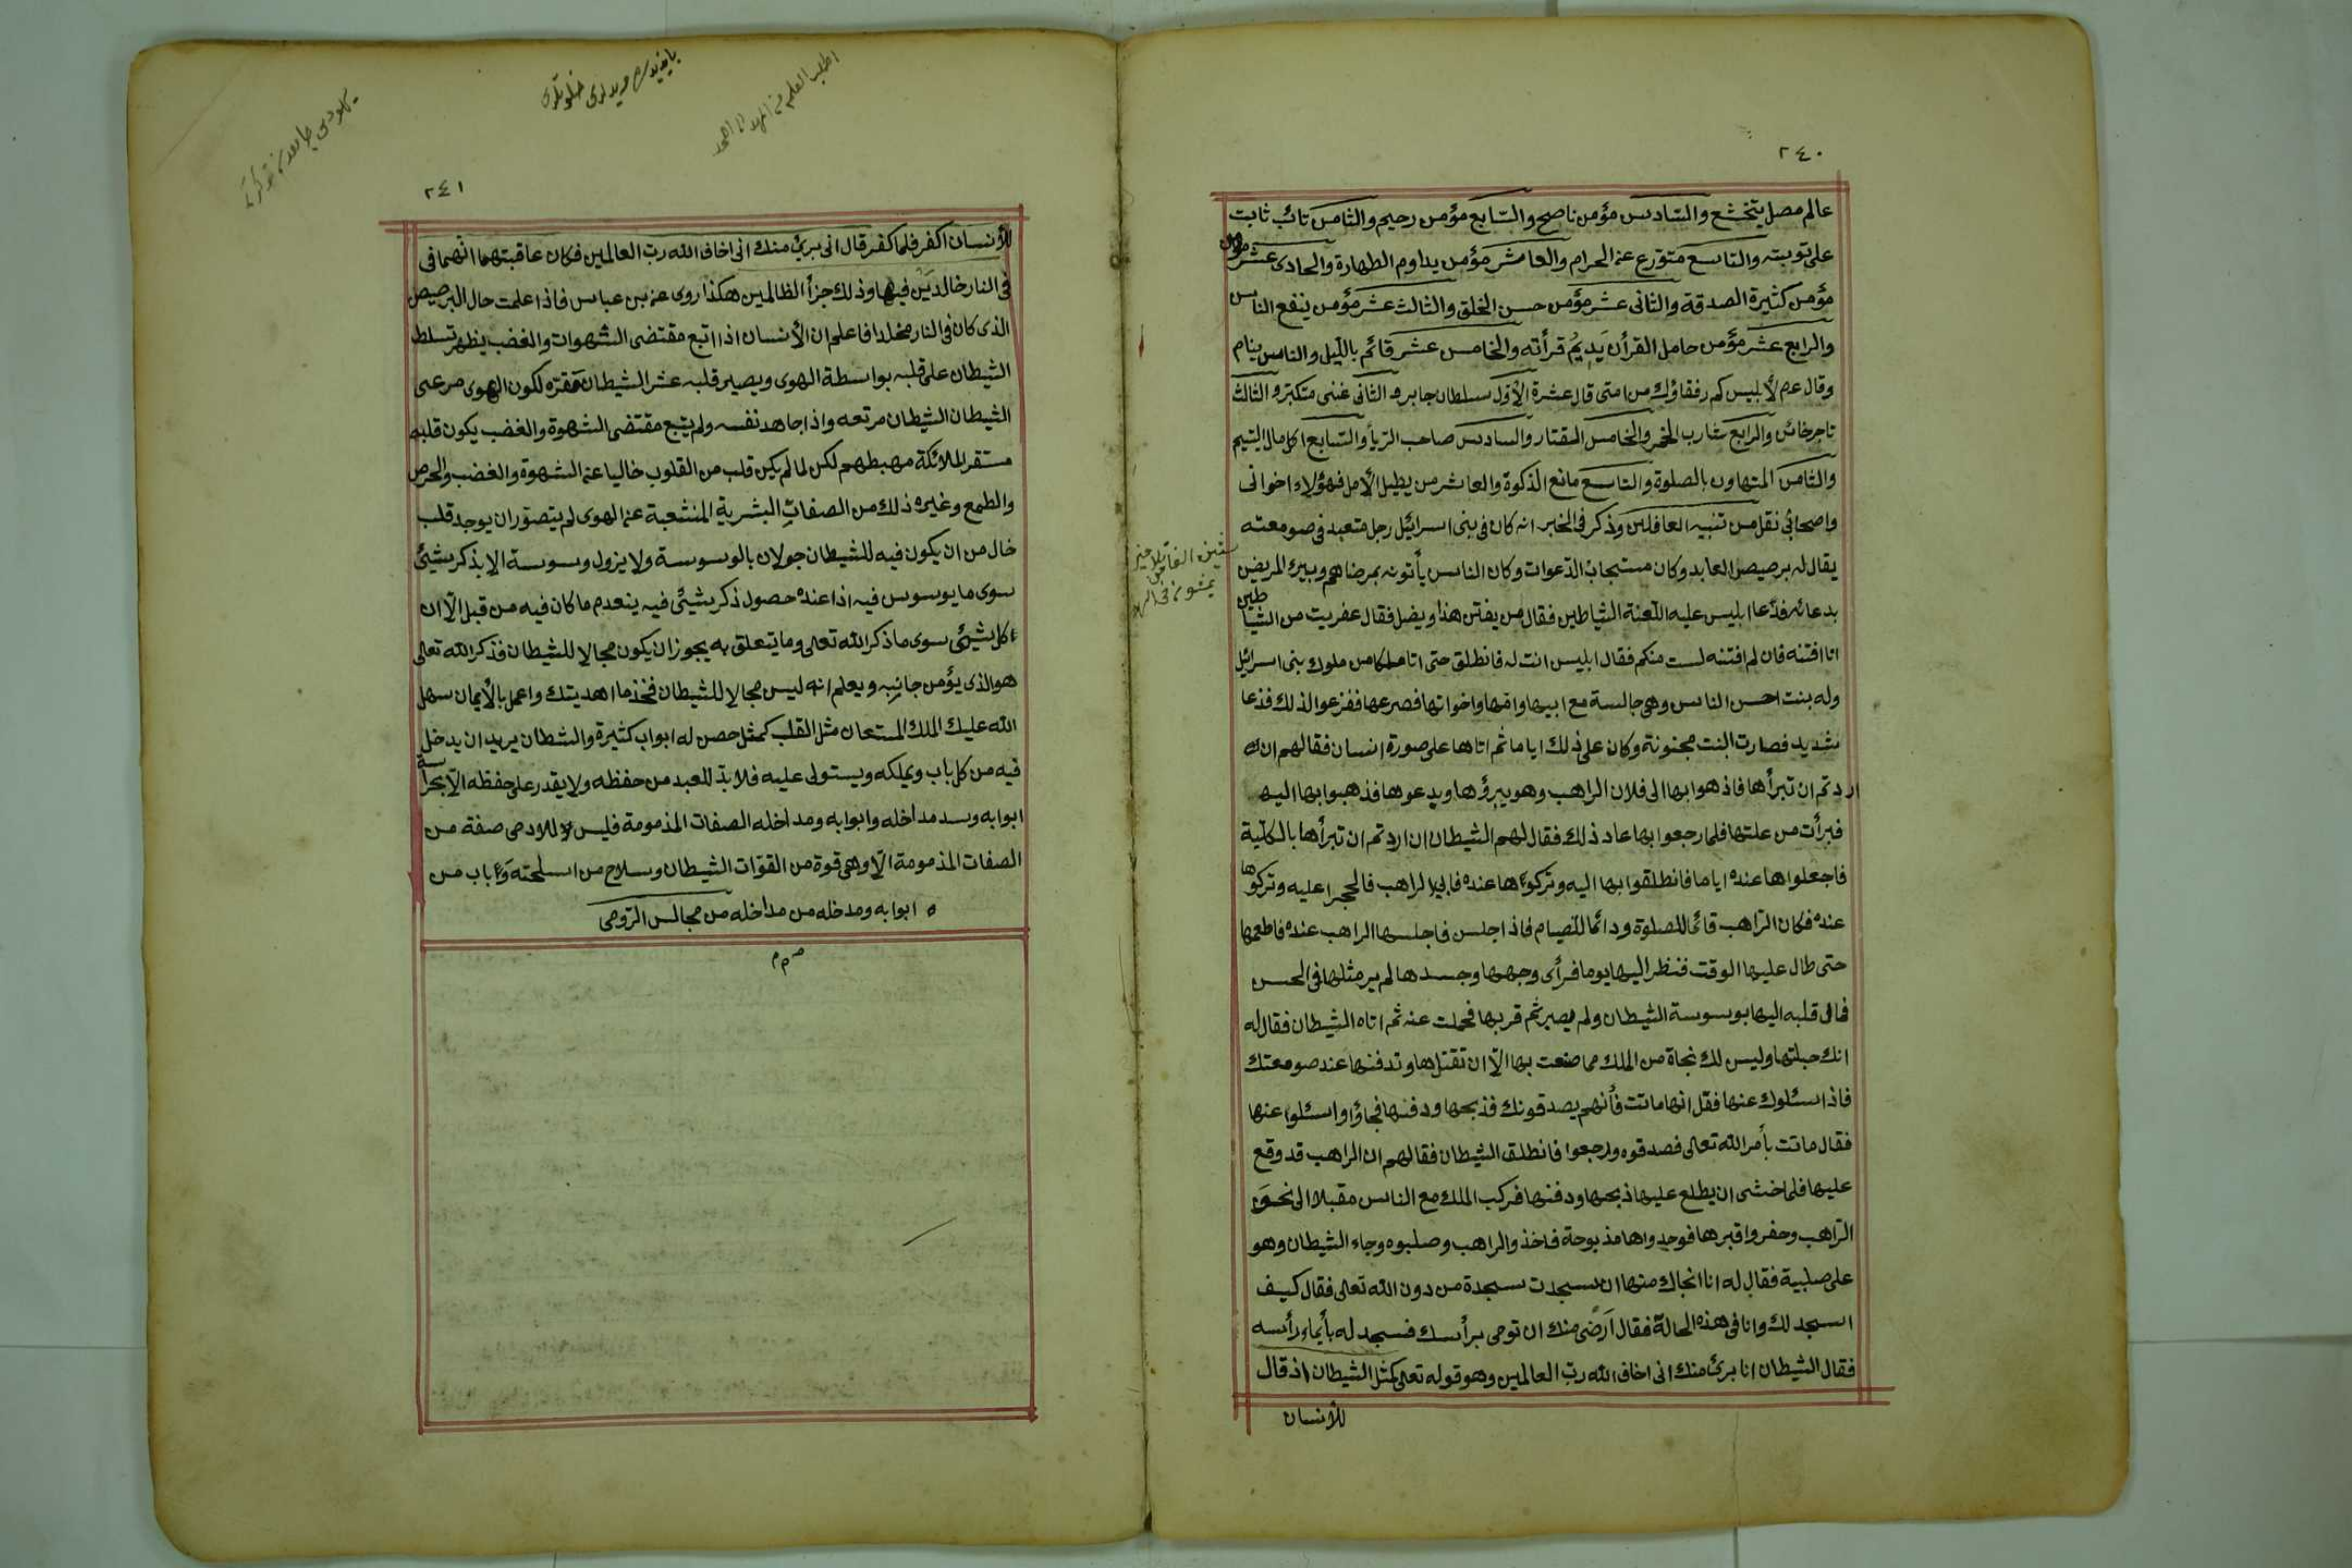 ٢٤٠
عالم مصل يتخشع والسّادس مؤمن ناصح والسّابع مؤمن رحيم والثامن تائب ثابت
على توبته والتاسع متوّرع عن الحرام والعاشر مؤمن يداوم الطهارة والحادى عشر
مؤمن كثيرة الصدقة والثانى عشر مؤمن حسن الخلق والثالث عشر مؤمن ينفع الناس
والرابع عشر مؤمن حامل القرأن يَدِيمُ قرأته والخامس عشر قائم بالّيل والناس ينام
وقال عم لأبليس كم رفقاؤك من امتى قال عشرة الأوّل سلطان جابر والثانى غنى متكبّر والثالث
تاجر خائن والرابع شارب الخمر والخامس القتار والسادس صاحب الريأ والسّابع اكل مال اليتيم
والثامن المتهاون بالصلوة والتاسع مانع الذكوة والعاشر من يطيل الأمل فهؤلاء اخوانى
واصحابى نقل من تنبيه الغافلين وذكر فى الخبر انه كان فى بنى اسرائيل رجل متعبد فى صومعته
يقال له برصيص العابد وكان مستجاب الدّعوات وكان الناس يأتونه بمرضاهم ويبرك المريض
بدعائه فدّعا ابليس عليه اللّعنة الشياطين فقال من يفتن هذا ويضل فقال عفريت من الشياطين
انا افتنه فان لم افتنه لست منكم فقال ابليس انت له فانطلق حتى اتا ملكا من ملوك بنى اسرائيل
وله بنت احسن الناس وهى جالسة مع ابيها وامّها واخواتها فصرعها ففزعوا لذلك فذعا
شديد فصارت البنت مجنونة وكان على ذلك اياما ثم اتاها على صورة انسان فقا لهم ان
اردتم ان تبرأها فاذهوابها الى فلان الراهب وهو يبرؤها ويدعوها فذهبوابها اليه
فبرأت من علتها فلما رجعوا بها عاد ذلك فقال لهم الشيطان ان اردتم ان تبرأها بالكلّية
فاجعلواها عنده اياما فانطلقوا بها اليه وتركوها عنده فابى الراهب فالجبرا عليه وتركوها
عنده فكان الرّاهب قائما للصلوة ودائما للّصيام فاذا جلس فاجلسها الراهب عنده فاطعمها
حتى طال عليها الوقت فنظر اليها يوما فرأى وجهها وجسدها لم ير مثلها فى الحسن
فمال قلبه اليها بوسوسة الشيطان ولم يصبر ثم قربها فحملت عنه ثم اتاه الشيطان فقال له
انك حبلتها وليس لك نجاة من الملك مما صنعت بها الّا ان تقتلها وتدفنها عند صومعتك
فاذا سئلوك عنها فقل انها ماتت فأنهم يصدقونك فذبحها ودفنها فجاؤا واسئلوا عنها
فقال ماتت بأمر الله تعالى فصدقوه ورجعوا فانطلق الشيطان فقا لهم ان الراهب قد وقع
عليها فلما خشى ان يطلع عليها ذبحها ودفنها فركب الملك مع الناس مقبلا الى نحو
الرّاهب وحفروا قبرها فوجدواها مذبوحة فاخذوالراهب وصلبوه وجاء الشيطان وهو
على صلبية فقال له انا انجاك منها ان سجدت سجدة من دون الله تعالى فقال كيف
اسجد لك وانا فى هذه الحالة فقال اَرضى منك ان تومى برأسك فسجد له بأيماء رأسه
فقال الشيطان انا برئ منك انى اخاف الله ربّ العالمين وهو قوله تعالى كمثل الشيطان اذ قال
للأنسان
٢٤١
للأنسان اكفر فلما كفر قال انى برئ منك انى اخاف الله ربّ العالمين فكان عاقبتهما انّهما فى
فى النار خالدَيْن فيها وذلك جزأ الظالمين هكذا روى عن بن عباس فاذا علمت حال البرصيص
الذى كان فى النار مخلدا فاعلم ان الأنسان اذا اتبع مقتضى الشهوات والغضب يظهر تسلط
الشيطان على قلبه بواسطة الهوى ويصير قلبه عشر الشيطان مقرّه لكون الهوى مرعى
الشيطان الشيطان مرتعه واذا جاهد نفسه ولم يتبع مقتضى الشهوة والغضب يكون قلبه
مستقر الملائكة مهبطهم لكن لما لم يكن قلب من القلوب خاليا عن الشهوة والغضب والحرص
والطمع وغيره ذلك من الصفاتِ البشرية المنشعبة عن الهوى لم يتصوّر ان يوجد قلب
خال من ان يكون فيه للشيطان جولان بالوسوسة ولا يزول وسوسة الا بذكر شيئ
سوى ما يوسوس فيه اذا عنده حصول ذكر شيئى فيه ينعدم ما كان فيه من قبل الّا ان
كل شيئى سوى ما ذكر الله تعالى وما يتعلق به يجوز ان يكون مجالا للشيطان فذكر الله تعالى
هو الذى يؤمن جانبه ويعلم انه ليس مجالا للشيطان فخذ ما اهديتك واعمل بالأيمان سهل
الله عليك الملك المستعان مثل القلب كمثل حصن له ابواب كثيرة والشطان يريد ان يدخل
فيه من كل باب ويملكه ويستولى عليه فلا بدّ للعبد من حفظه ولا يقدر على حفظه الّا بحراسة
ابوابه وسد مداخله وابوابه ومداخله الصفات المذمومة فليس للادمى صفة من
الصفات المذمومة الّا وهى قوة من القوّات الشيطان وسلاح من اسلحته وباب من
ابوابه ومدخله من مداخله من مجالس الرّومى
م م